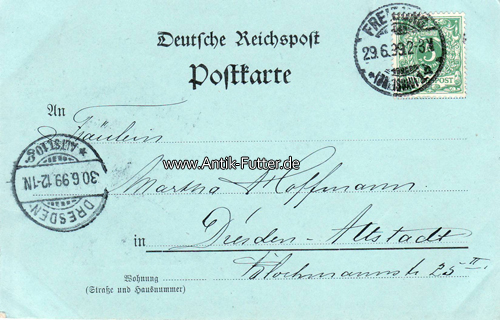 Deutsche Reichspost
Postkarte
FREIBURG
29.6.99.2-3N
5
POST
An
Fräulein
www.Antik-Futter.de
Martha Hoffmann.
ALTST.10.c
30.6.99.12-1N
DRESDEN-
in Dresden-Altstadt
Blochmannstr 25 II.
Wohnung
(Straße und Hausnummer)